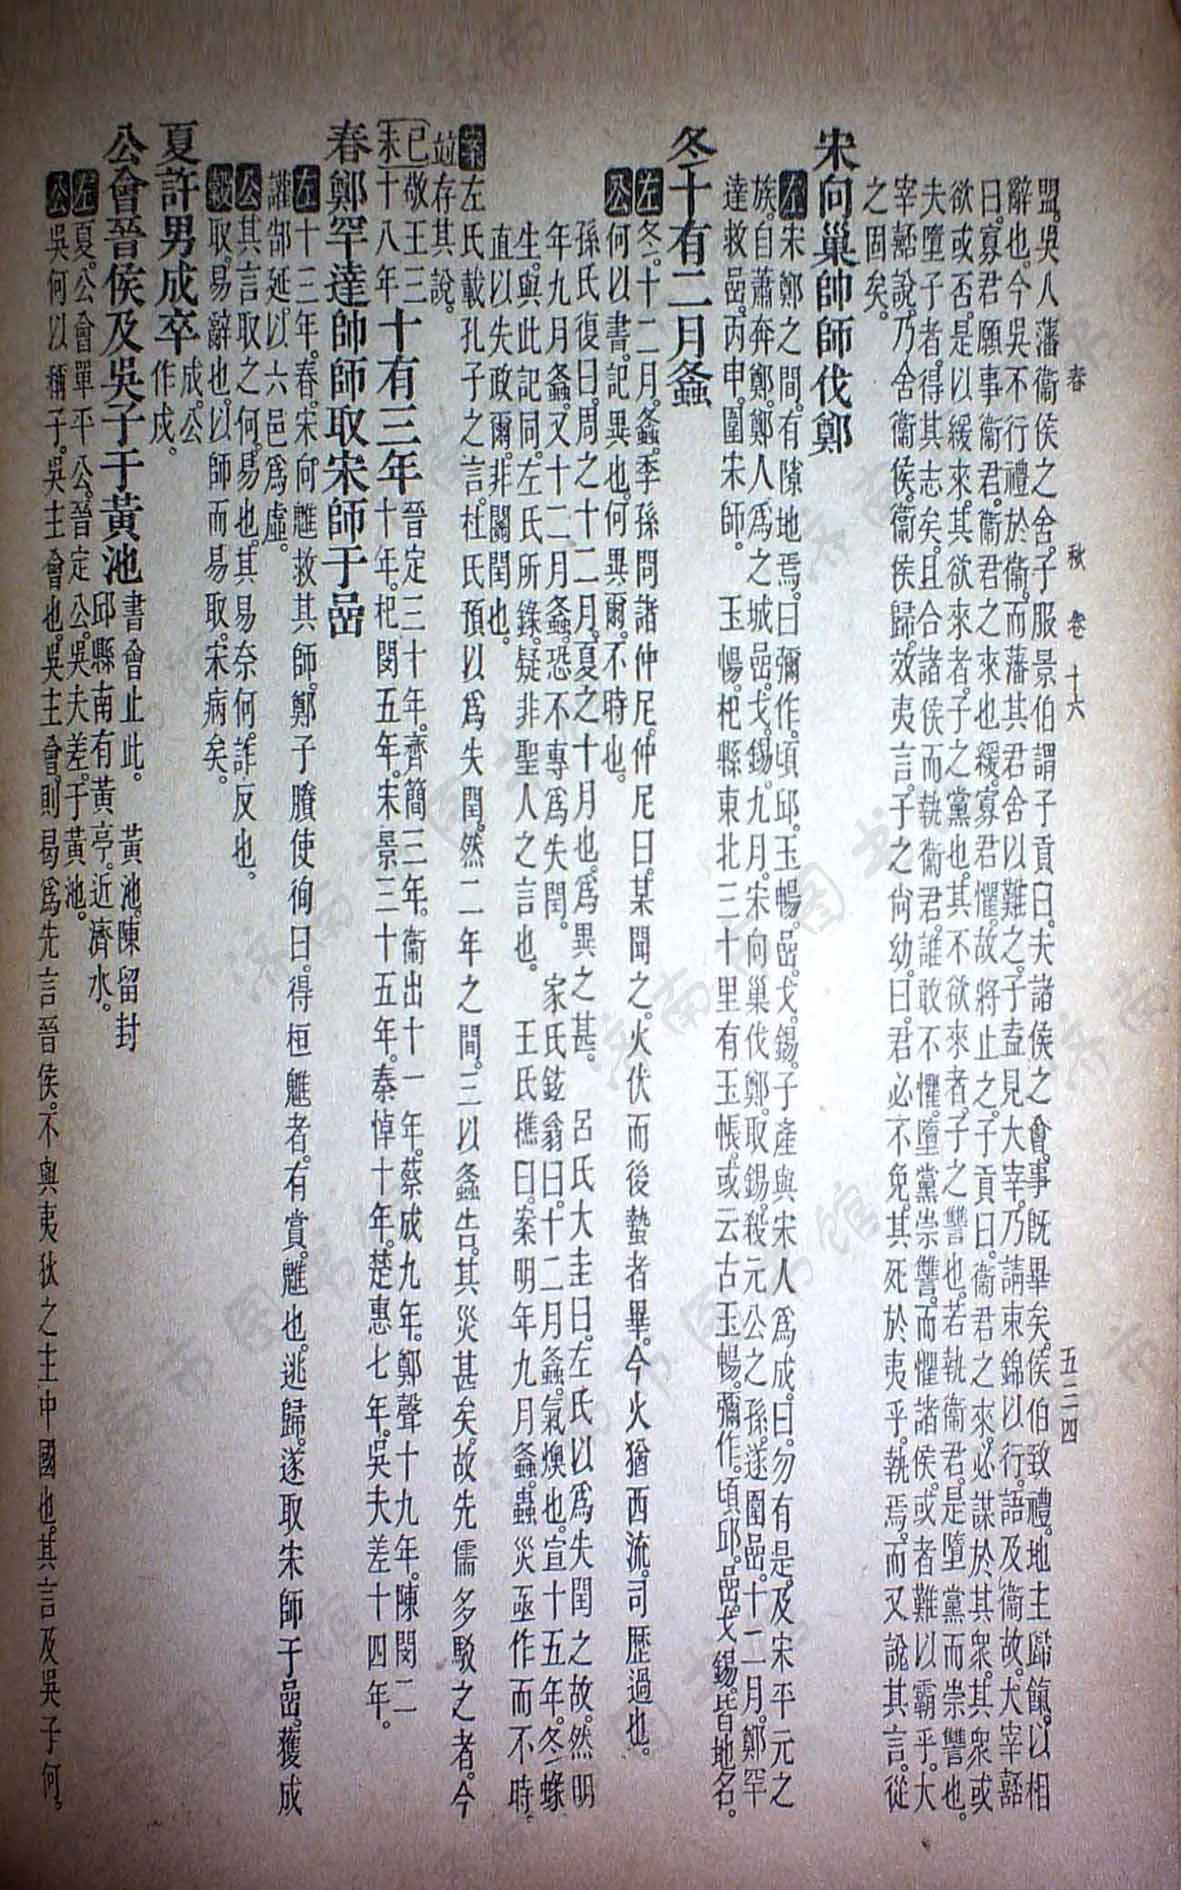 春 秋 卷 十六 五三四
盟。吳人藩衞侯之舍。子服景伯謂子貢曰。夫諸侯之會。事既畢矣。侯伯致禮。地主歸餼。以相
辭也。今吳不行禮於衞。而藩其君舍以難之。子盍見大宰。乃請束錦以行。語及衞故。大宰嚭
曰。寡君願事衞君。衞君之來也緩。寡君懼。故將止之。子貢曰。衞君之來。必謀於其衆。其衆或
欲或否。是以緩來。其欲來者。子之黨也。其不欲來者。子之讐也。若執衞君。是墮黨而崇讐也。
夫墮子者。得其志矣。且合諸侯而執衞君。誰敢不懼。墮黨崇讐。而懼諸侯。或者難以霸乎。大
宰嚭說。乃舍衞侯。衞侯歸。效夷言。子之尙幼。曰。君必不免。其死於夷乎。執焉。而又說其言。從
之固矣。
宋向巢帥師伐鄭
左宋鄭之間。有隙地焉。曰彌作。頃邱。玉暢。嵒。戈。錫。子產與宋人爲成。曰。勿有是。及宋平元之
族。自蕭奔鄭。鄭人爲之城嵒。戈。錫。九月。宋向巢伐鄭。取錫。殺元公之孫。遂圍嵒。十二月。鄭罕
達救嵒。丙申。圍宋師。 玉暢。杞縣東北三十里有玉帳。或云古玉暢。彌作。頃邱。嵒。戈。錫。皆地名。
冬十有二月螽
左冬。十二月。螽。季孫問諸仲尼。仲尼曰。某聞之。火伏而後蟄者畢。今火猶西流。司歷過也。
公何以書。記異也。何異爾。不時也。
孫氏復曰。周之十二月。夏之十月也。爲異之甚。 呂氏大圭曰。左氏以爲失閏之故。然明
年九月螽。又十二月螽。恐不專爲失閏。 家氏鉉翁曰。十二月螽。氣燠也。宣十五年。冬。蝝
生。與此記同。左氏所錄。疑非聖人之言也。 王氏樵曰。案明年九月螽。蟲災亟作而不時。
直以失政爾。非關閏也。
案左氏載孔子之言。杜氏預以爲失閏。然二年之間。三以螽告。其災甚矣。故先儒多駁之者。今
竝存其說。
己未敬王三十八年十有三年晉定三十年。齊簡三年。衞出十一年。蔡成九年。鄭聲十九年。陳閔二
十年。杞閔五年。宋景三十五年。秦悼十年。楚惠七年。吳夫差十四年。
春鄭罕達帥師取宋師于嵒
左十三年。春。宋向魋救其師。鄭子賸使徇曰。得桓魋者。有賞。魋也。逃歸。遂取宋師于嵒。獲成
讙郜延。以六邑爲虛。
公其言取之何。易也。其易奈何。詐反也。
穀取。易辭也。以師而易取。宋病矣。
夏許男成卒成。公作戌。
公會晉侯及吳子于黃池書會止此。 黃池。陳留封
邱縣南有黃亭。近濟水。
左夏。公會單平公。晉定公。吳夫差。于黃池。
公吳何以稱子。吳主會也。吳主會。則曷爲先言晉侯。不與夷狄之主中國也。其言及吳子何。